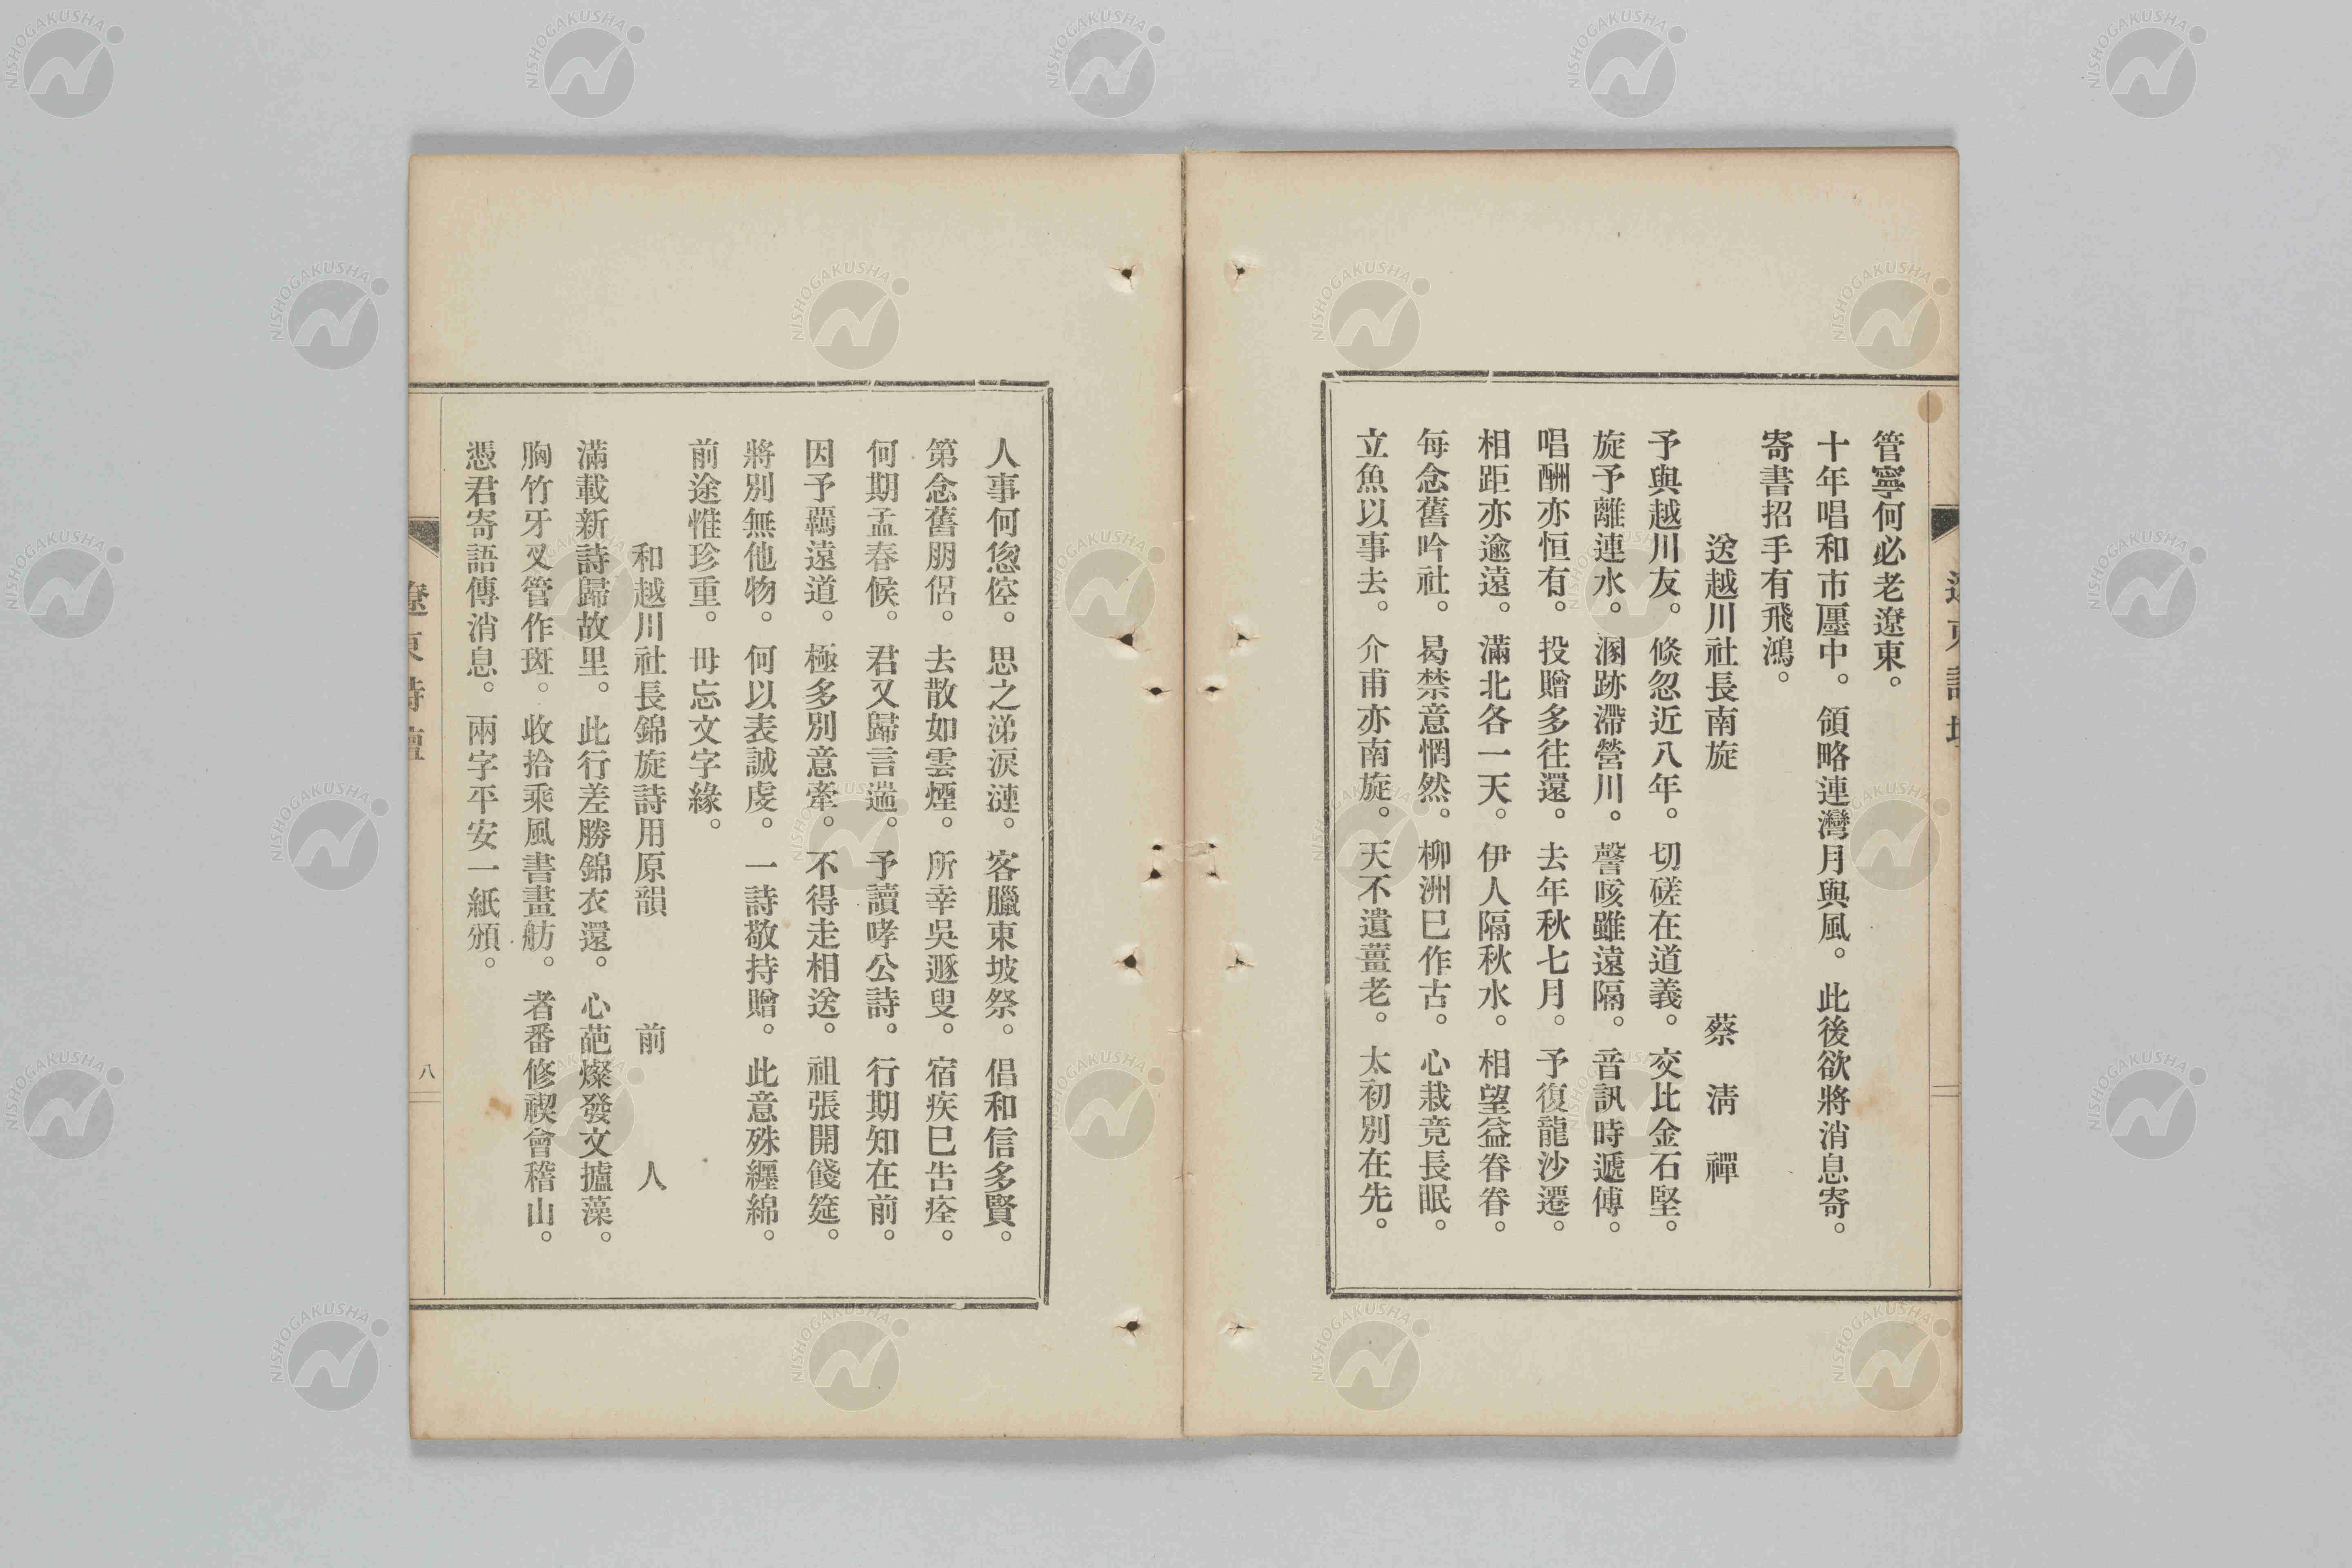 管寧何必老遼東。
十年唱和市廛中。領略連灣月與風。此後欲將消息寄。
寄書招手有飛鴻。
送越川社長南旋　蔡清禪
予與越川友。倐忽近八年。切磋在道義。交比金石堅。
旋予離連水。溷跡滯營川。謦咳雖遠隔。音訊時遞傳。
唱酬亦恒有。投贈多往還。去年秋七月。予復龍沙遷。
相距亦逾遠。滿北各一天。伊人隔秋水。相望益眷眷。
每念舊吟社。曷禁意惘然。柳洲巳作古。心栽竟長眠。
立魚以事去。介甫亦南旋。天不遺薑老。太初別在先。
人事何悤倥。思之涕淚漣。客臘東坡祭。倡和信多賢。
第念舊朋侶。去散如雲煙。所幸吳遯叟。宿疾巳告痊。
何期孟春候。君又歸言遄。予讀哮公詩。行期知在前。
因予羈遠道。極多別意牽。不得走相送。祖張開餞筵。
將別無他物。何以表誠虔。一詩敬持贈。此意殊纒綿。
前途惟珍重。毋忘文字緣。
和越川社長錦旋詩用原韻　前人
滿載新詩歸故里。此行差勝錦衣還。心葩燦發文攎藻。
胸竹牙叉管作斑。收拾乘風書畫舫。者番修禊會稽山。
憑君寄語傳消息。兩字平安一紙頒。
遼東詩壇
八
遼東詩壇
NISHOGAKUSHA